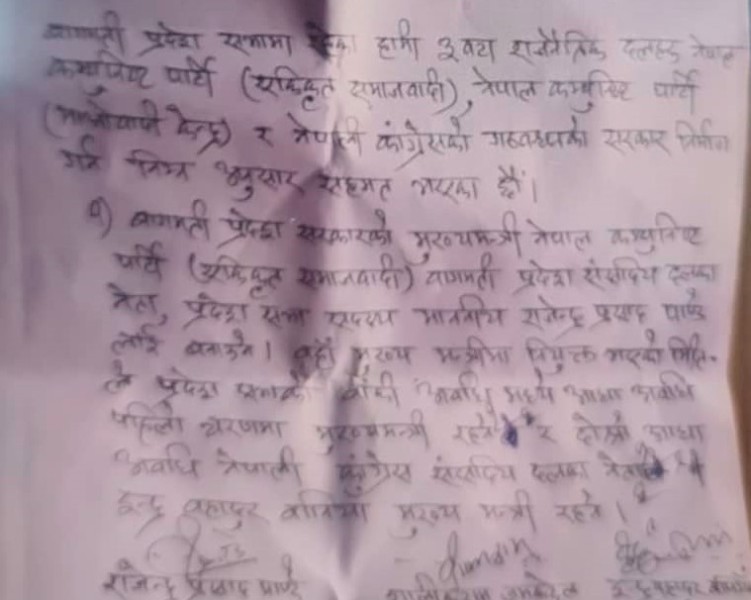 बागमती प्रदेश सभामा रहेका हामी ३ वटा राजनैतिक दलहरु नेपाल
कम्युनिष्ट पार्टी (एकिकृत समाजवादी), नेपाल कम्युनिष्ट पार्टी
(माओवादी केन्द्र) र नेपाली कांग्रेसको गठवन्धनको सरकार निर्माण
गर्न निम्न अनुसार सहमत भएका छौं।
१) बागमती प्रदेश सरकारको मुख्यमन्त्री नेपाल कम्युनिष्ट
पार्टी (एकिकृत समाजवादी) बागमती प्रदेश संसदिय दलका
नेता, प्रदेश सभा सदस्य माननीय राजेन्द्र प्रसाद पाण्डे
लाई बनाउने। वहाँ मुख्य मन्त्रीमा नियुक्त भएको मिति-
ले प्रदेश सभाको बाँकी अवधि मध्ये आधा अवधि
पहिलो चरणमा मुख्यमन्त्री रहने र दोस्रो आधा
अवधि नेपाली कांग्रेस संसदिय दलका नेता
इन्द्र बहादुर बानियाँ मुख्य मन्त्री रहने।
राजेन्द्र प्रसाद पाण्डे शालिकराम जमकट्टेल इन्द्र बहादुर बानियाँ